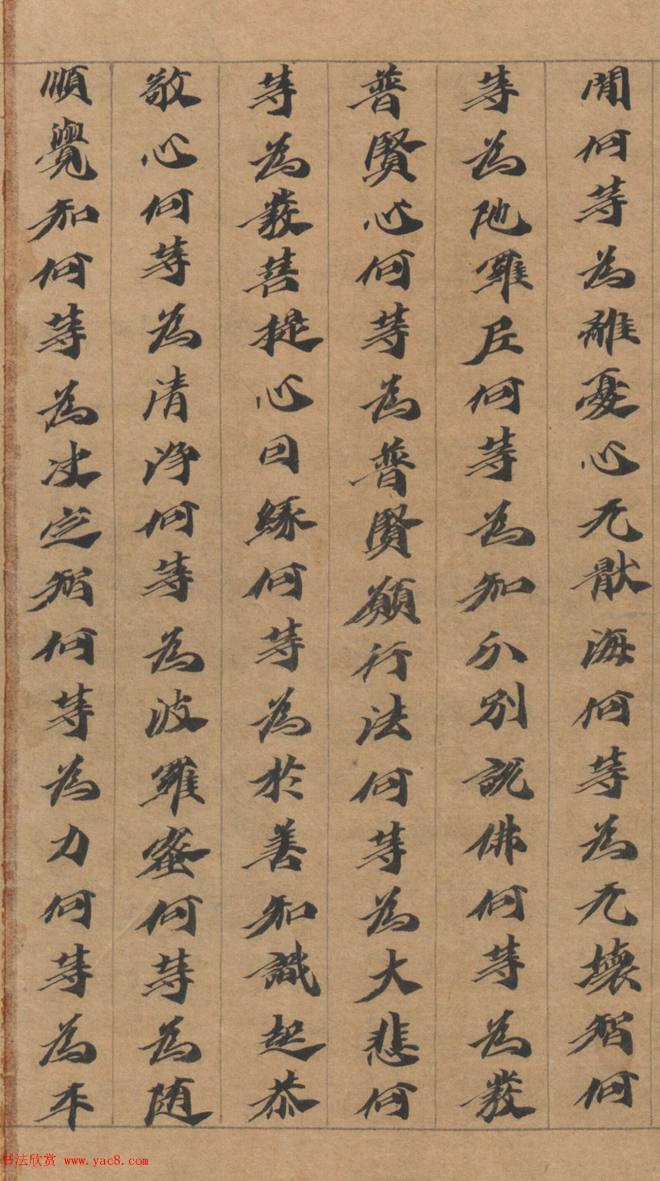 間何等為離憂心无猒海何等為无壞智何
等為陁羅尼何等為知分別説佛何等為發
普賢心何等為普賢願行法何等為大悲何
等為發菩提心因緣何等為於善知識起恭
敬心何等為清淨何等為波羅蜜何等為随
順覺知何等為决定智何等為力何等為平
书法欣赏 www.yac8.com